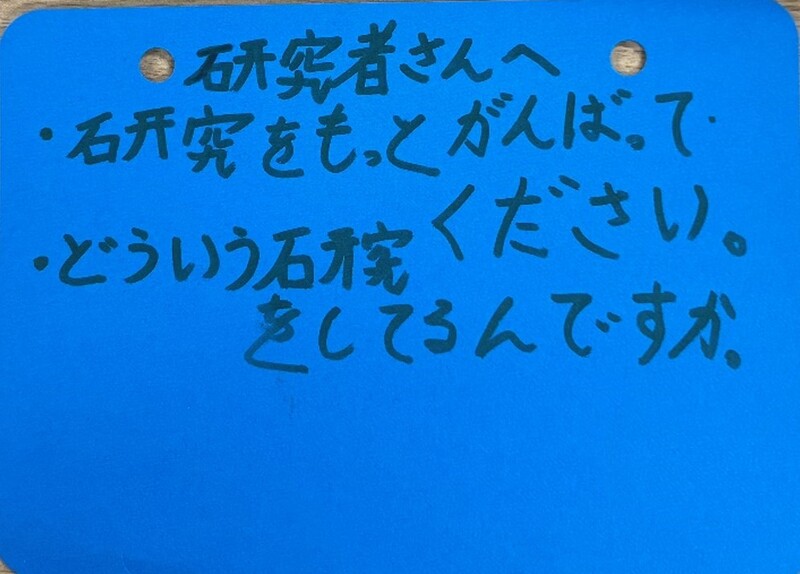 研究者さんへ
・研究をもっとがんばって
ください。
・どういう研究
をしてるんですか。